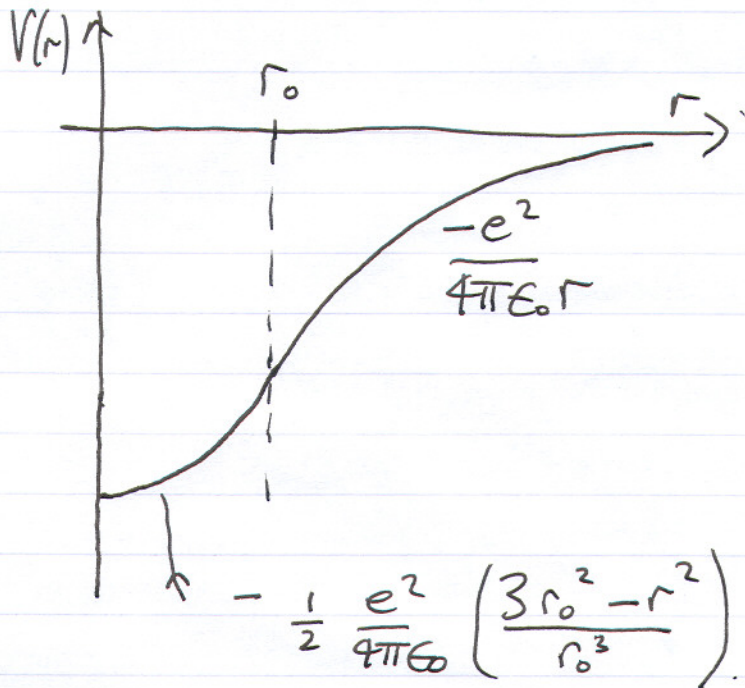 V(r)
r₀
r
-e² / 4πϵ₀r
- 1/2 e²/4πϵ₀ (3r₀² - r² / r₀³).